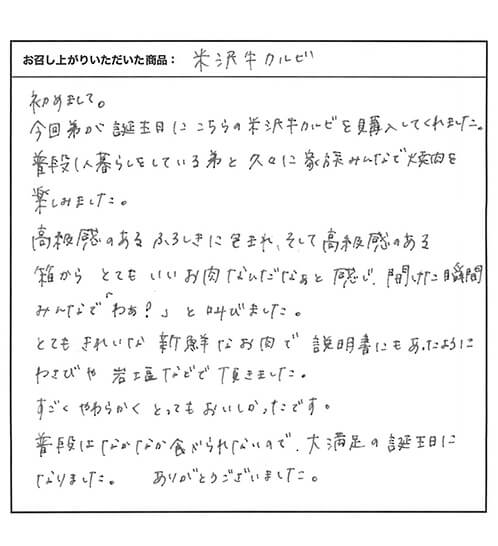 お召し上がりいただいた商品： 米沢牛カルビ
初めまして。
今回弟が誕生日にこちらの米沢牛カルビを購入してくれました。
普段1人暮らしをしている弟と久々に家族みんなで焼肉を
楽しみました。
高級感のあるふろしきに包まれ、そして高級感のある
箱からとてもいいお肉なんだなぁと感じ、開けた瞬間
みんなで「わぁ？」と叫びました。
とてもきれいな新鮮なお肉で説明書にもあったように
わさびや岩塩などで頂きました。
すごくやわらかくとってもおいしかったです。
普段はなかなか食べられないので、大満足の誕生日に
なりました。 ありがとうございました。